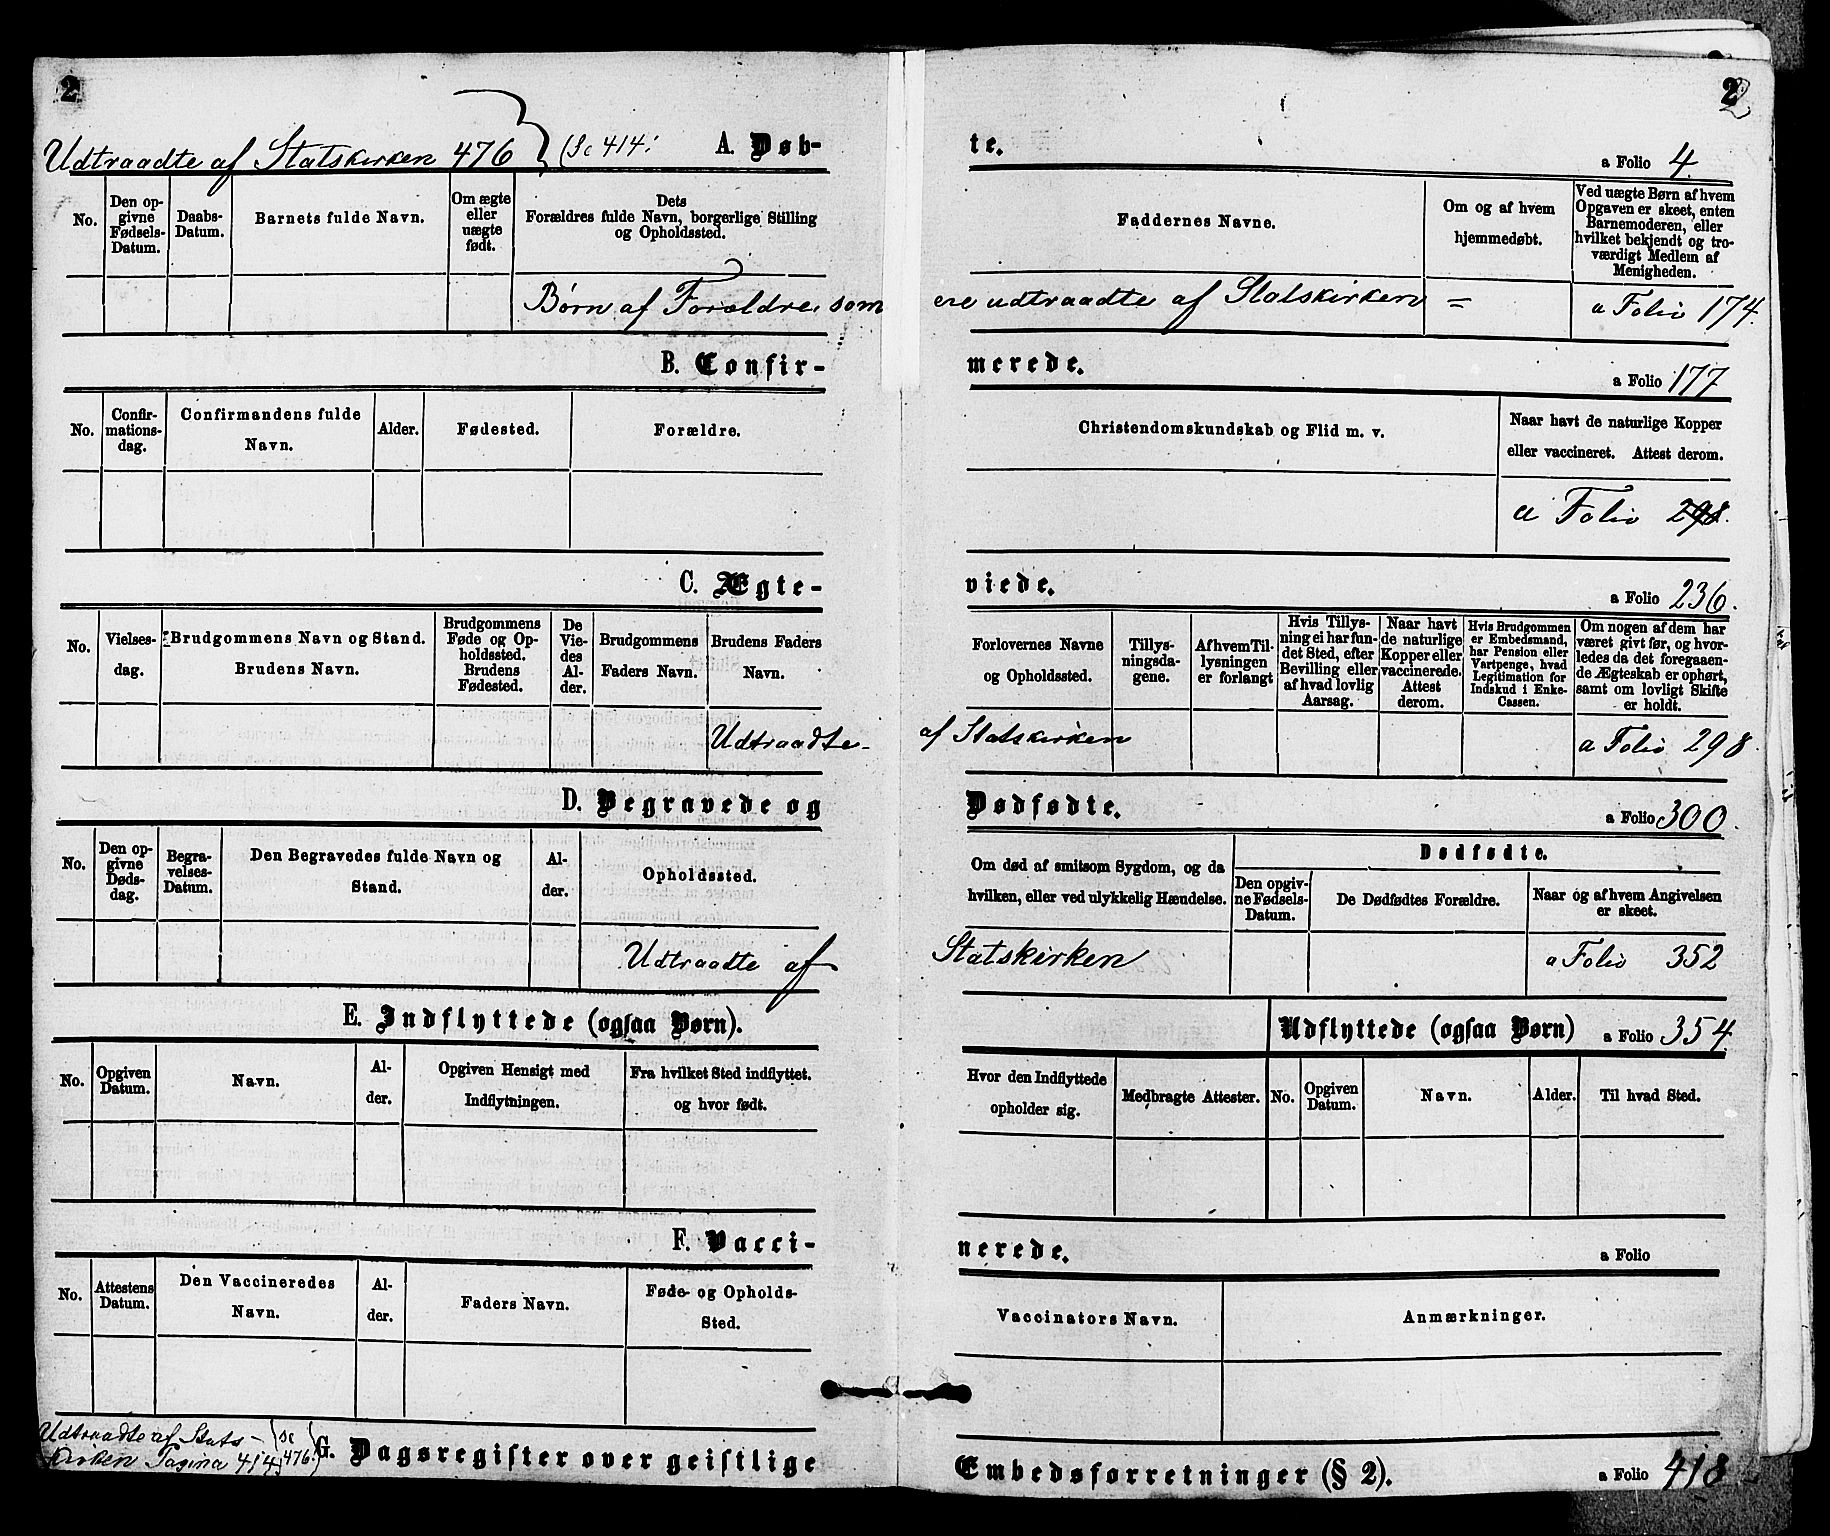 2
2
Udtraadte af Statskirken 476 (Se 414:
A. Døb-
te.
a Folio 4.
No.
Den op-
givne
Fødsels-
Datum.
Daabs-
Datum.
Barnets fulde Navn.
Om ægte
eller
uægte
født.
Dets
Forældres fulde Navn, borgerlige Stilling
og Opholdssted.
Faddernes Navne.
Om og af hvem
hjemmedøbt.
Ved uægte Børn af hvem
Opgaven er skeet, enten
Barnemoderen, eller
hvilket bekjendt og tro-
værdigt Medlem af
Menigheden.
Børn af Forældre som
ere udtraadte af Statskirken = a Folio 174.
B. Confir-
merede.
a Folio 177
No.
Confir-
mations-
dag.
Confirmandens fulde
Navn.
Alder.
Fødested.
Forældre.
Christendomskundskab og Flid m. v.
Naar havt de naturlige Kopper
eller vaccineret. Attest derom.
a Folio 298.
C. Ægte-
viede.
a Folio 236.
No.
Vielses-
dag.
Brudgommens Navn og Stand.
Brudens Navn.
Brudgommens
Føde og Op-
holdssted.
Brudens
Fødested.
De
Vie-
des
Al-
der.
Brudgommens
Faders Navn.
Brudens Faders
Navn.
Forlovernes Navne
og Opholdssted.
Tillys-
ningsda-
gene.
Af hvem Til-
lysningen
er forlangt
Hvis Tillys-
ning ei har fun-
det Sted, efter
Bevilling eller
af hvad lovlig
Aarsag.
Naar havt
de naturlige
Kopper eller
vaccinerede.
Attest
derom.
Hvis Brudgommen
er Embedsmand,
har Pension eller
Vartpenge, hvad
Legitimation for
Indskud i Enke-
Cassen.
Om nogen af dem har
været givt før, og hvor-
ledes da det foregaaen-
de Ægteskab er ophørt,
samt om lovligt Skifte
er holdt.
Udtraadte
af Statskirken
a Folio 298
D. Begravede og
Dødfødte.
a Folio 300.
No.
Den op-
givne
Døds-
dag.
Begra-
velses-
Datum.
Den Begravedes fulde Navn og
Stand.
Al-
der.
Opholdssted.
Om død af smitsom Sygdom, og da
hvilken, eller ved ulykkelig Hændelse.
Dødfødte.
Den opgiv-
ne Fødsels-
Datum.
De Dødfødtes Forældre.
Naar og af hvem Angivelsen
er skeet.
Udtraadte af
Statskirken
a Folio 352
E. Indflyttede (ogsaa Børn).
Udflyttede (ogsaa Børn)
a Folio 354
No.
Opgiven
Datum.
Navn.
Al-
der.
Opgiven Hensigt med
Indflytningen.
Fra hvilket Sted indflyttet.
og hvor født.
Hvor den Indflyttede
opholder sig.
Medbragte Attester.
No.
Opgiven
Datum.
Navn.
Alder.
Til hvad Sted.
F. Vacci-
nerede.
a Folio
No.
Attestens
Datum.
Den Vaccineredes
Navn.
Al-
der.
Faders Navn.
Føde- og Opholds-
Sted.
Vaccinators Navn.
Anmærkninger.
Udtraadte af Stats-
kirken Pagina 414
(se
476.)
G. Dagsregister over geistlige
Embedsforretninger (§ 2).
a Folio 418